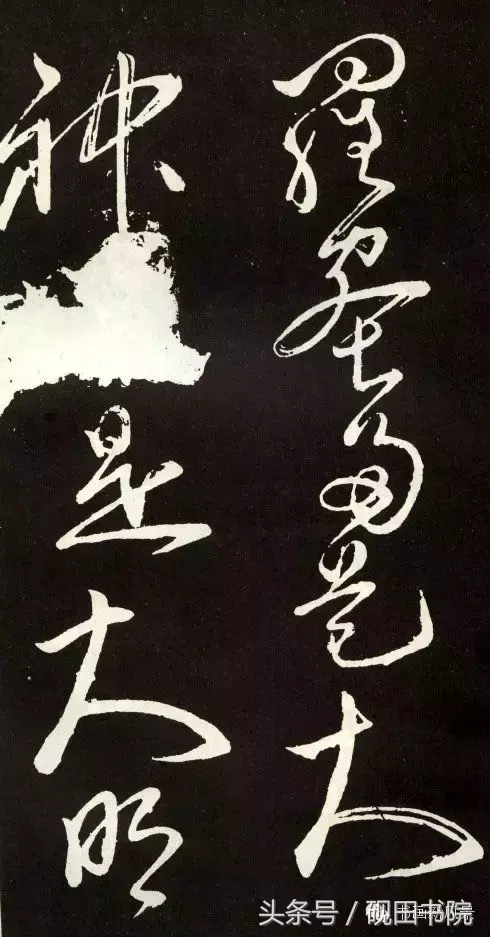 羅蜜多是大
神是大明
头条号 / 砚田书院